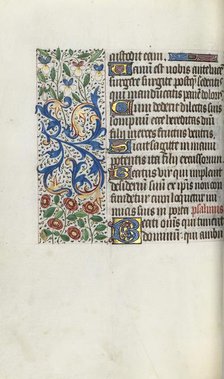 custodit eam.
Vanum est vobis ante luce
surgere surgite postq sederitis
qui manducatis pane doloris
Cum dederit dilectis suis
ecce hereditas domini
merces fructus ventris
Sicut sagitte in manu
potentis ita filij excussor
Beatus vir qui implevit
desiderium suu ex ipsis non
confundetur cum loquetur ini
micis suis in porta psalmus
Beati oms qui timent
dominum qui ambu